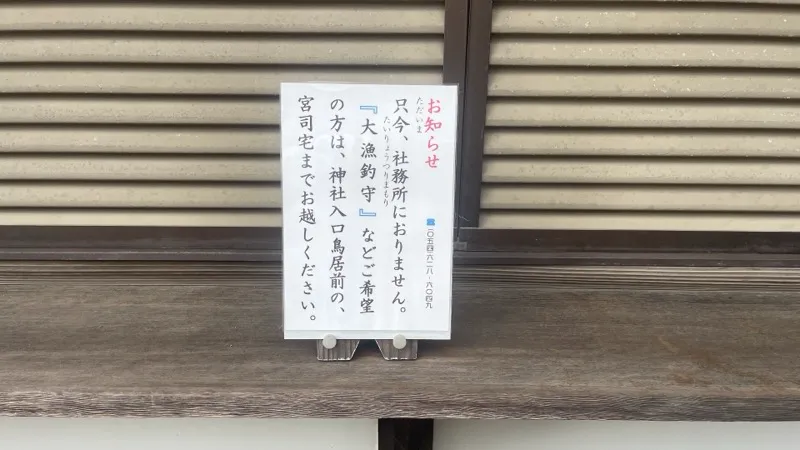 お知らせ
☎〇五四・六二八・六〇四九
只今、社務所におりません。
ただいま
『大漁釣守』などご希望
たいりょうつりまもり
の方は、神社入口鳥居前の、
宮司宅までお越しください。